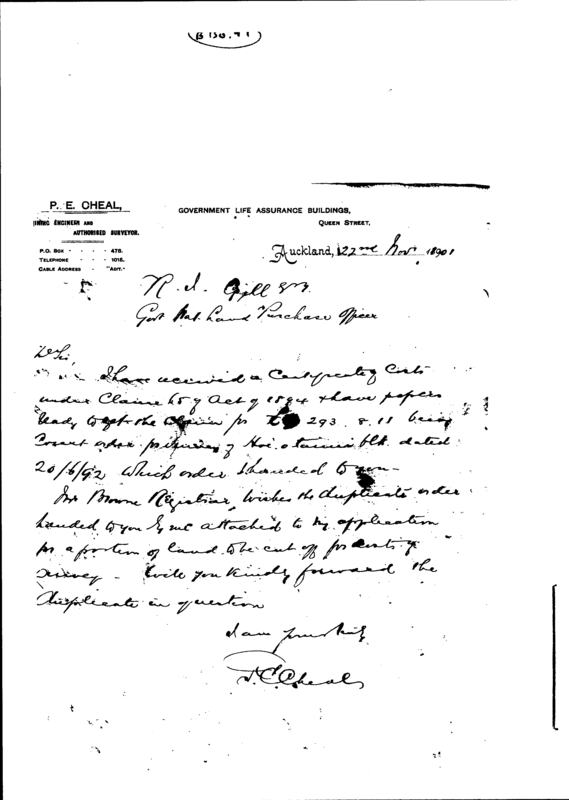 P. E. CHEAL,
MINING ENGINEER AND
AUTHORISED SURVEYOR.
P.O. BOX - - - 478.
TELEPHONE - - - 1015.
CABLE ADDRESS - "ADIT."
GOVERNMENT LIFE ASSURANCE BUILDINGS,
QUEEN STREET,
Auckland, 22nd Novr 1890
Gill Esq
Govt Nat. Land Purchase Officer
D Sir,
I have received a Certificate of Costs
under Clause 65 of Act of 1894 & have papers
ready to get the for £ 293. 8. 11 being
Court order of blk dated
20/6/92 which order I handed to you
Mr Browne Registrar, wishes the duplicate order
handed to you by me attached to my application
for a portion of land to be cut off for costs of
survey - will you kindly forward the
duplicate in question
I am yours
P.E. Cheal